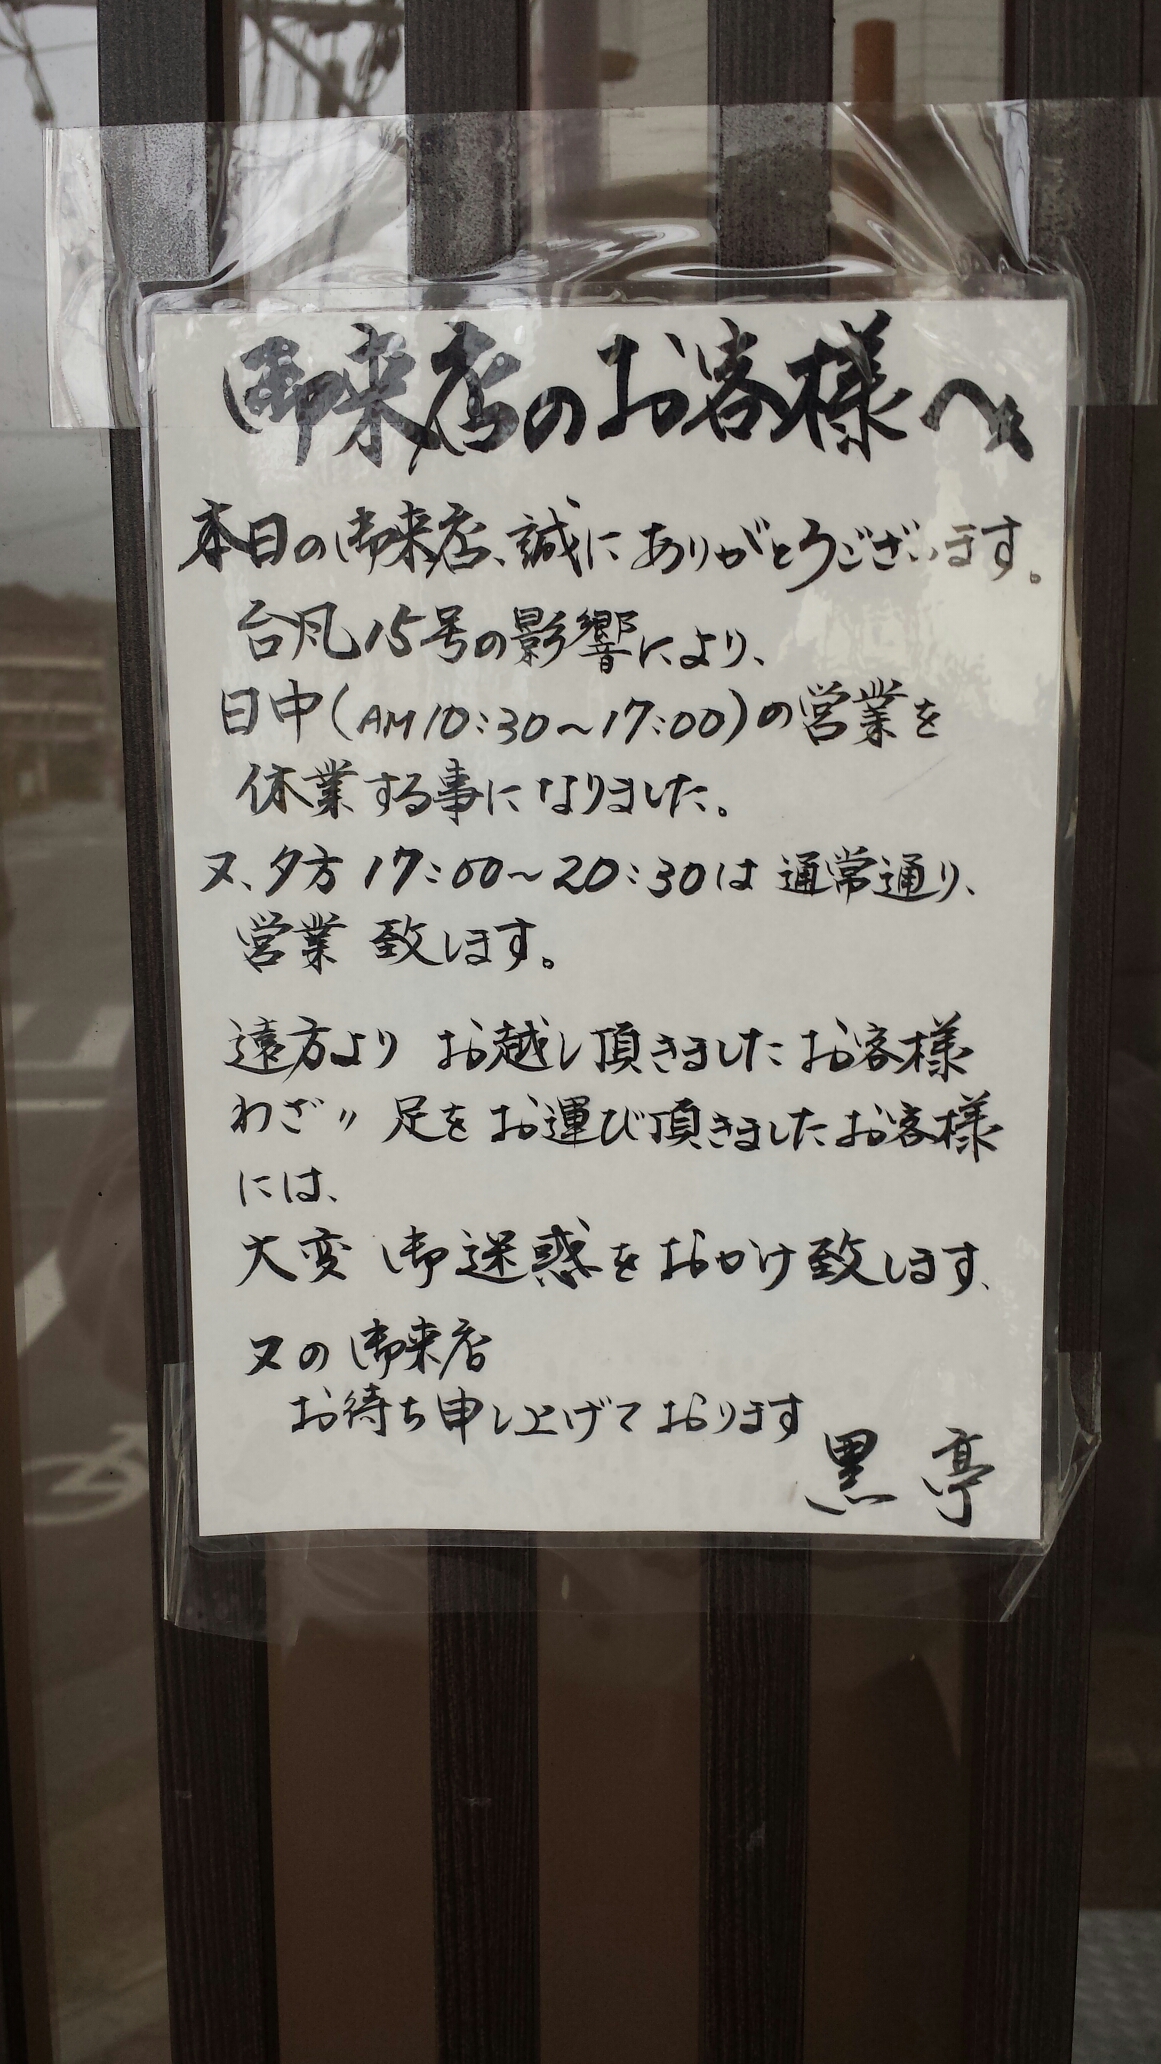 御来店のお客様へ
本日の御来店、誠にありがとうございます。
台風15号の影響により、
日中(AM10:30〜17:00)の営業を
休業する事になりました。
又、夕方 17:00〜20:30は 通常通り、
営業 致します。
遠方より お越し頂きましたお客様
わざ〃 足をお運び頂きましたお客様
には、
大変 御迷惑をおかけ致します、
又の御来店
お待ち申し上げております
黒亭